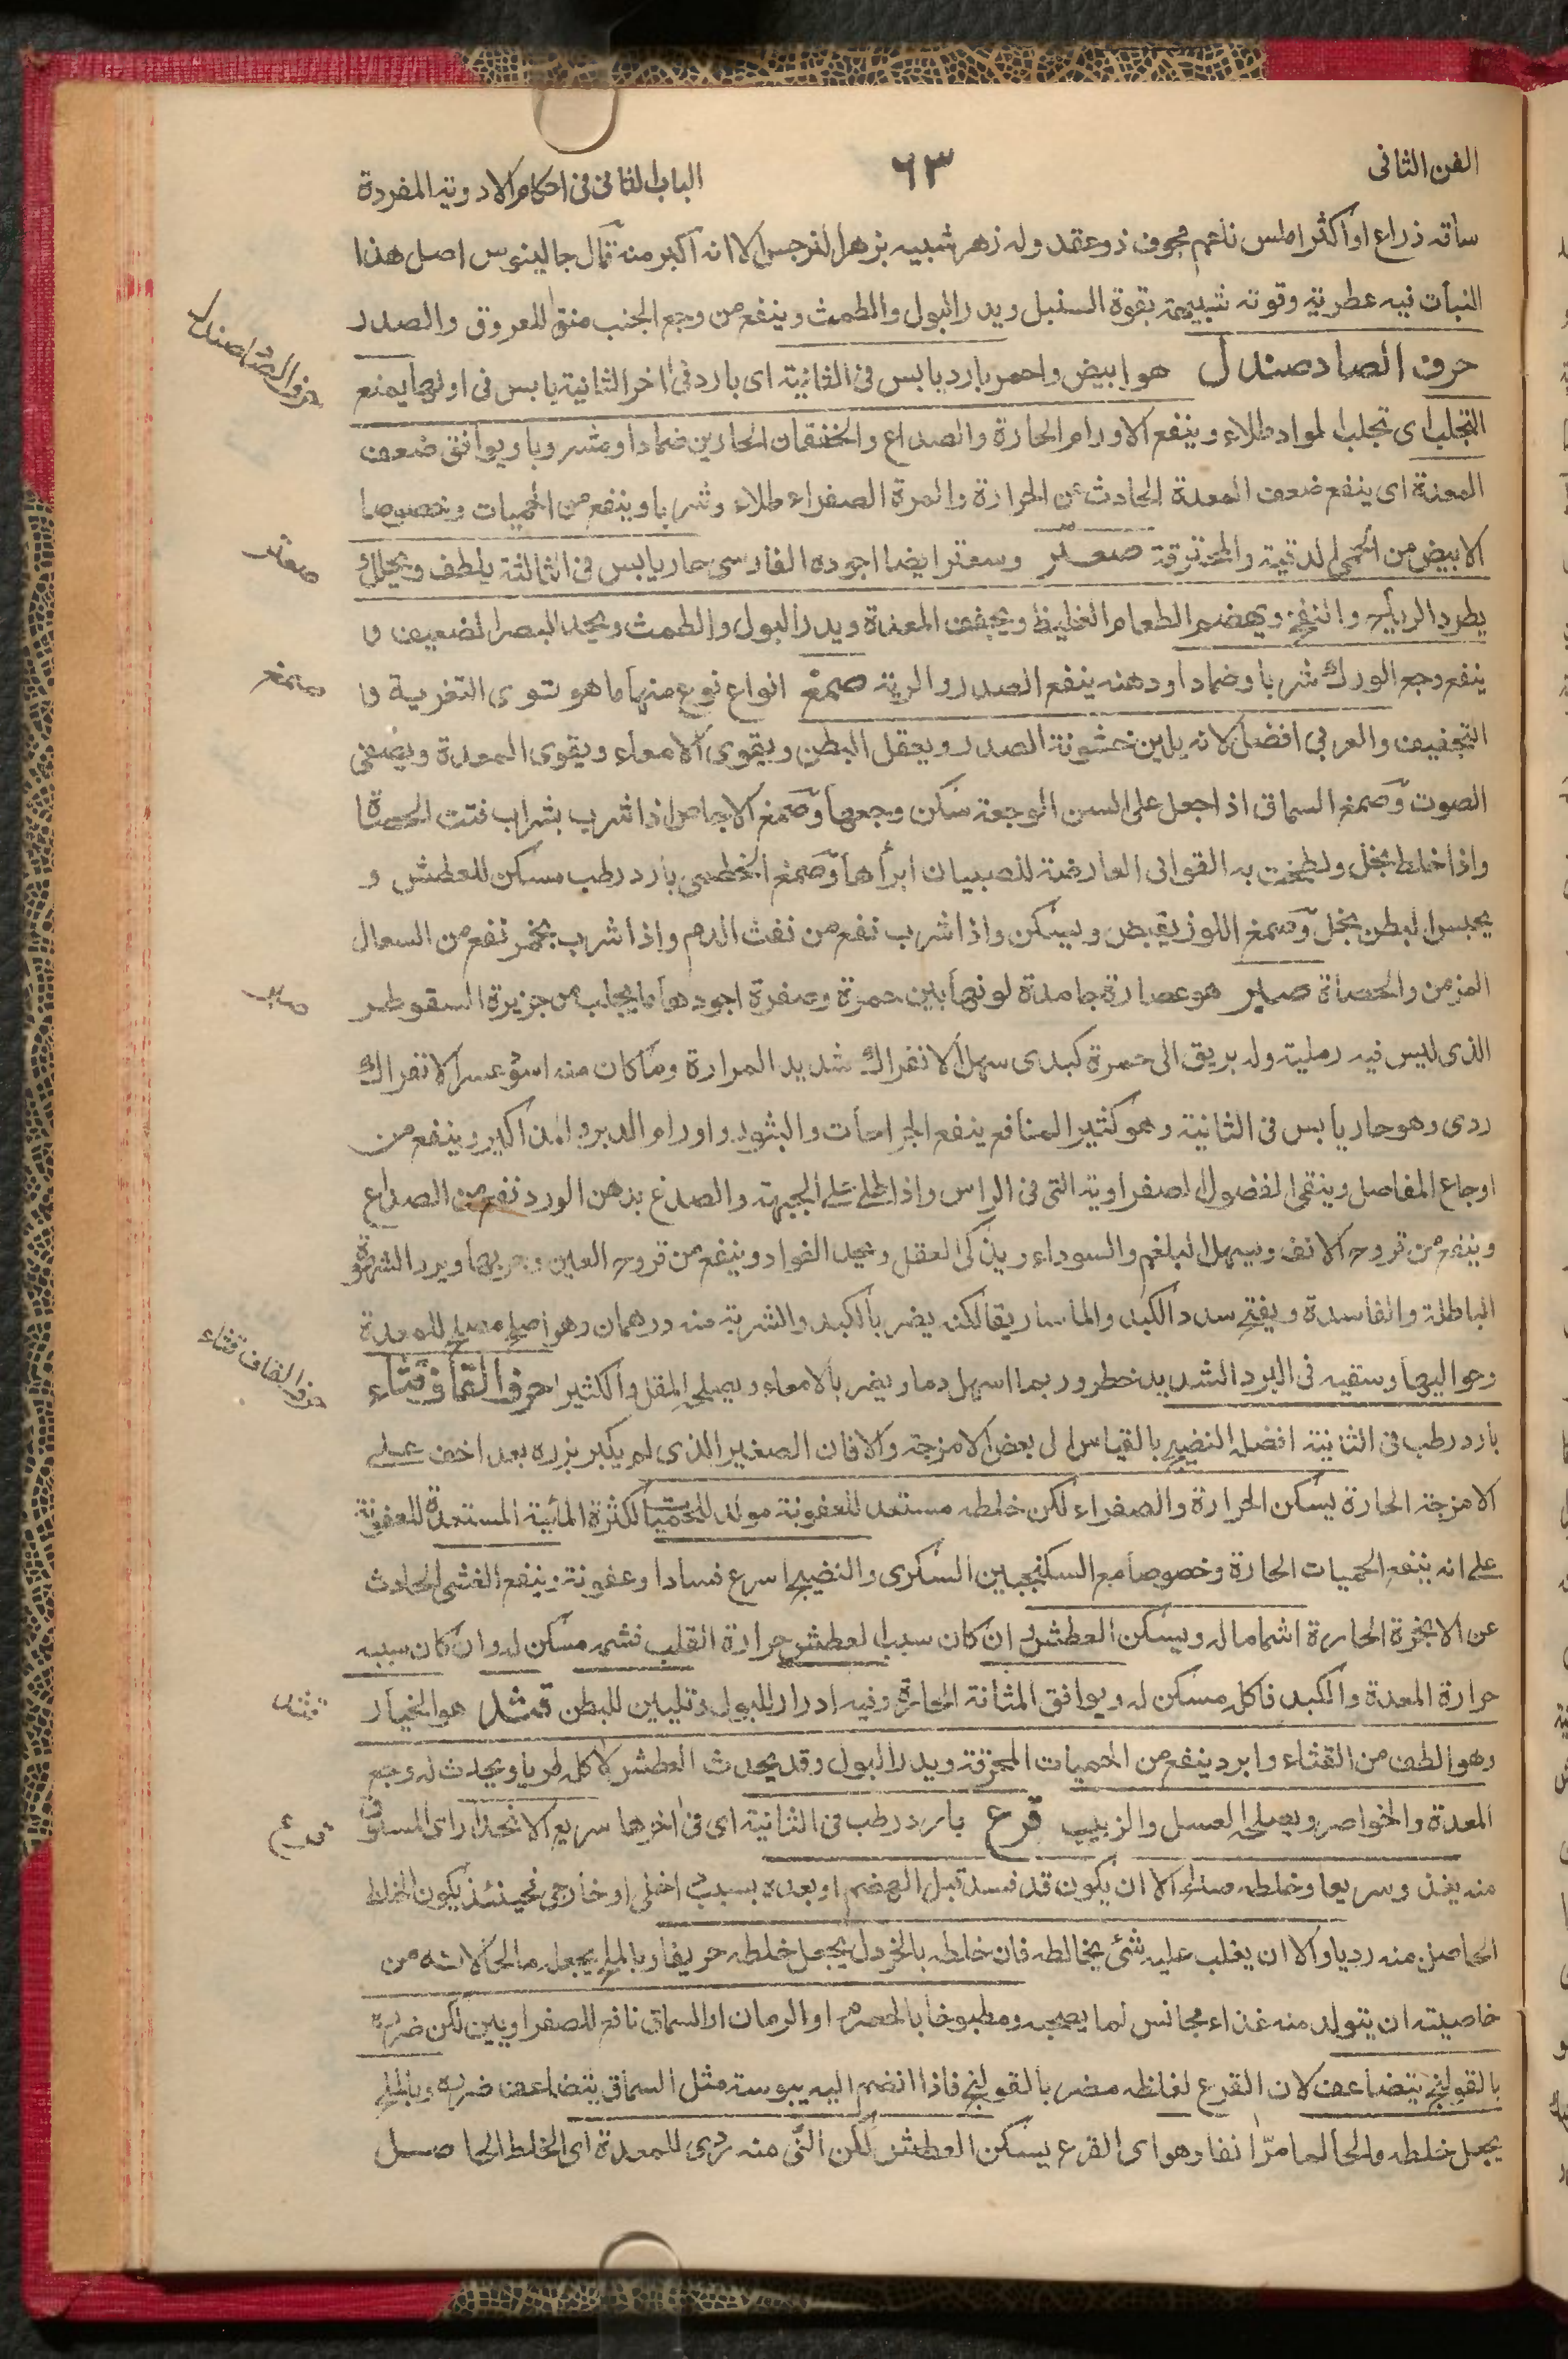 الفن الثانى
٦٣
الباب الثانى فى احكام الادوية المفردة
ساقه ذراع او اكثر املس ناعم مجوف ذو عقد وله زهر شبيه بزهر النرجس الا انه اكبر منه قال جالينوس اصل هذا
النبات فيه عطرية وقوته شبيهة بقوة السنبل ويدر البول والطمث وينفع من وجع الجنب منق للعروق والصدر
حرف الصاد صندل هو ابيض واحمر بارد يابس فى الثانية اى بارد فى اخر الثانية يابس فى اولها يمنع
التجلب اى تجلب المواد طلاء وينفع الاورام الحارة والصداع والخفقان الحارين ضمادا ومشروبا ويوافق ضعف
المعدة اى ينفع ضعف المعدة الحادث عن الحرارة والمرة الصفراء طلاء وشربا وينفع من الحميات وخصوصا
الابيض من الحمى الدقية والمحترقة صعتر وسعتر ايضا اجوده الفارسى حار يابس فى الثالثة يلطف ويحلل و
يطرد الرياح والنفخ ويهضم الطعام الغليظ ويجفف المعدة ويدر البول والطمث ويحد البصر الضعيف و
ينفع وجع الورك شربا وضمادا ودهنه ينفع الصدر والرية صمغ انواع نوع منها ما هو لقوى التغرية و
التجفيف والعربى افضل لانه يلين خشونة الصدر ويعقل البطن ويقوى الامعاء ويقوى المعدة ويصفى
الصوت وصمغ السماق اذا جعل على السن الوجعة سكن وجعها وصمغ الاجاص اذا شرب بشراب فتت الحصاة
واذا خلط بخل ولطخت به القوابى العارضة للصبيان ابرأها وصمغ الخطمى بارد رطب مسكن للعطش و
يحبس البطن بخل وصمغ اللوز يقبض ويسكن واذا شرب نفع من نفث الدم واذا شرب بخمر نفع من السعال
المزمن والحصاة صبر هو عصارة جامدة لونها بين حمرة وصفرة اجودها ما يجلب من جزيرة السقوطر
الذى ليس فيه رملية وله بريق الى حمرة كبدى سهل الانفراك شديد المرارة وما كان منه اسود عسر الانفراك
ردى وهو حار يابس فى الثانية وهو كثير المنافع ينفع الجراحات والبثور واورام الدبر والمذاكير وينفع من
اوجاع المفاصل وينقى الفضول الصفراوية التى فى الراس واذا طلى على الجبهة والصدغ بدهن الورد نفع من الصداع
وينفع من قروح الانف ويسهل البلغم والسوداء ويذكى العقل ويحد الفواد وينفع من قروح العين وجربها ويرد الشهوة
الباطلة والفاسدة ويفتح سدد الكبد والماساريقا لكنه يضر بالكبد والشربة منه درهمان وهو اصلح مصلح للمعدة
وحواليها وسقيه فى البرد الشديد خطر وربما اسهل دما ويضر بالامعاء ويصلحه المقل والكثيرا حرف القاف قثاء
بارد رطب فى الثانية افضله النضيج بالقياس الى بعض الامزجة والا فان الصغير الذى لم يكبر بزره بعد اخف على
الامزجة الحارة يسكن الحرارة والصفراء لكن خلطه مستعد للعفونة مولد للحميات لكثرة المائية المستعدة للعفونة
على انه ينفع الحميات الحارة وخصوصا مع السكنجبين السكرى والنضيج اسرع فسادا وعفونة وينفع الغشى الحادث
عن الابخرة الحارة اشماما له ويسكن العطش ان كان سبب العطش حرارة القلب فشمه مسكن له وان كان سببه
حرارة المعدة والكبد فاكله مسكن له ويوافق المثانة الحارة وفيه ادرار للبول وتليين للبطن قثد هو الخيار
وهو الطف من القثاء وابرد ينفع من الحميات المحرقة ويدر البول وقد يحدث العطش لاكله طريا ويحدث له وجع
المعدة والخواصر ويصلحه العسل والزبيب قرع بارد رطب فى الثانية اى فى اخرها سريع الانحدار اى المسلوق
منه يغذو سريعا وخلطه صالح الا ان يكون قد فسد قبل الهضم او بعده بسبب داخلى او خارجى فحينئذ يكون الخلط
الحاصل منه رديا والا ان يغلب عليه شئ يخالطه فان خلطه بالخردل يجعل خلطه حريفا وبالملح يجعله مالحا لانه من
خاصيته ان يتولد منه غذاء مجانس لما يصحبه ومطبوخا بالحصرم او الرمان او السماق نافع للصفراويين لكن ضرره
بالقولنج يتضاعف لان القرع لغلظه مضر بالقولنج فاذا انضم اليه يبوسة مثل السماق يتضاعف ضرره وبالملح
يجعل خلطه مالحا لما مرّ انفا وهو اى القرع يسكن العطش لكن النّى منه ردى للمعدة اى الخلط الحاصل
حرف الصاد صندل
صعتر
صمغ
صبر
حرف القاف قثاء
قثد
قرع